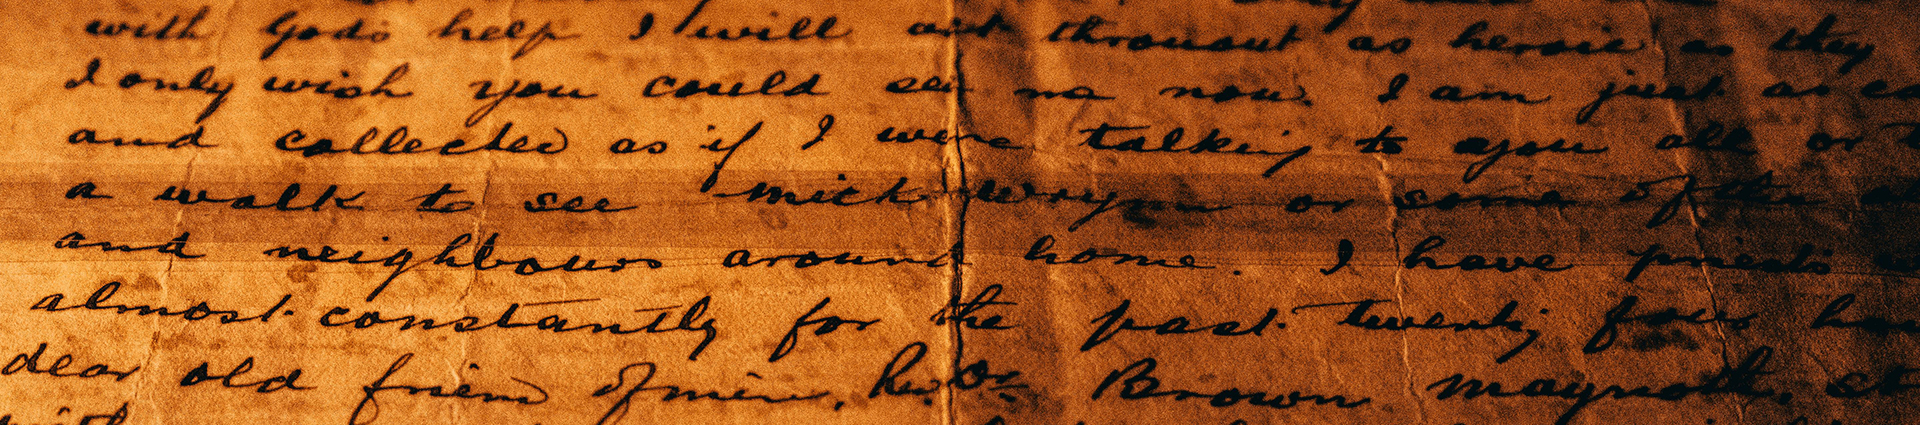 with gods help I will act throuout as heroic as they
I only wish you could see me now. I am just as
and collected as if I were talking to you all or
a walk to see Mick Wryn or some of the
and neighbours around home. I have priests
almost constantly for the past twenty four
dear old friend of mine, Rev. Dr Brown Maynoth, st